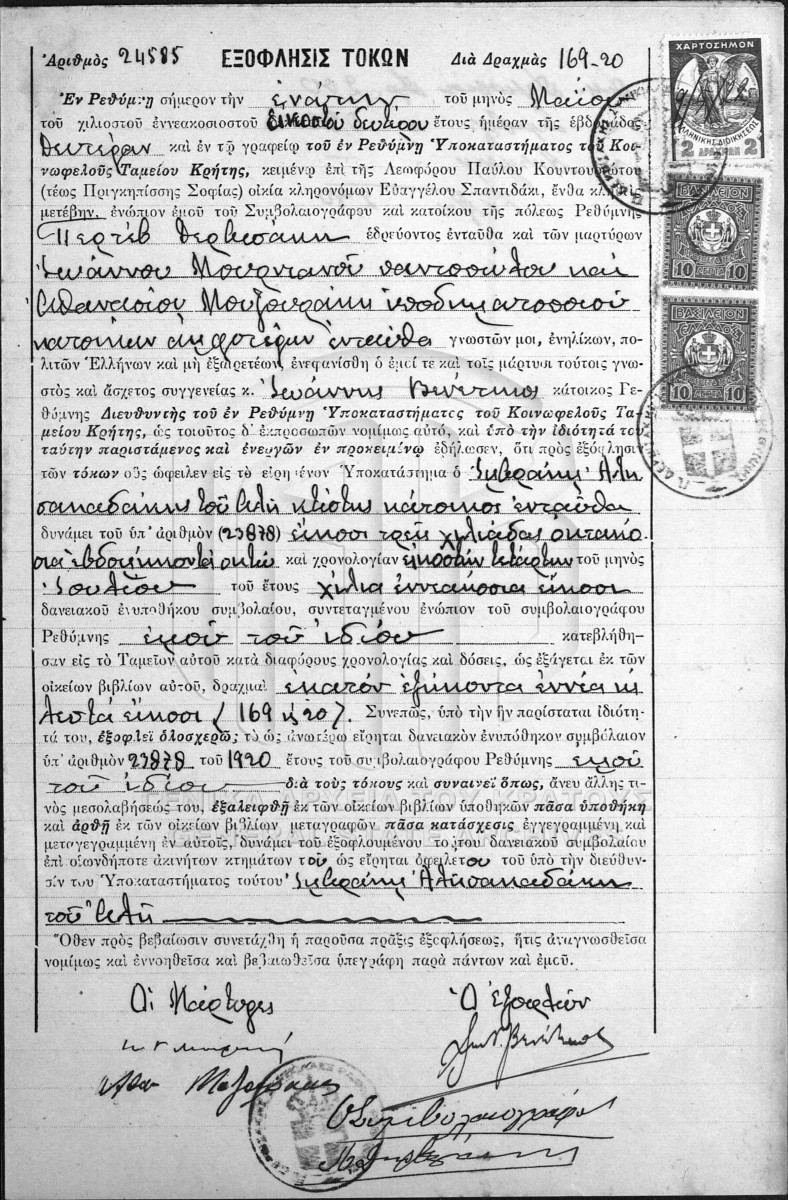 Ἀριθμὸς 24585 ΕΞΟΦΛΗΣΙΣ ΤΟΚΩΝ Διὰ Δραχμὰς 169-20
Ἐν Ρεθύμνῃ σήμερον τὴν ἐνάτην τοῦ μηνὸς Μαΐου
τοῦ χιλιοστοῦ ἐννεακοσιοστοῦ εἰκοστοῦ δευτέρου ἔτους ἡμέραν τῆς ἑβδομάδος
Δευτέραν καὶ ἐν τῷ γραφείῳ τοῦ ἐν Ρεθύμνῃ Ὑποκαταστήματος τοῦ Κοι-
νωφελοῦς Ταμείου Κρήτης, κειμένῳ ἐπὶ τῆς Λεωφόρου Παύλου Κουντουριώτου
(τέως Πριγκηπίσσης Σοφίας) οἰκία κληρονόμων Εὐαγγέλου Σπαντιδάκι, ἔνθα κληθεὶς
μετέβην, ἐνώπιον ἐμοῦ τοῦ Συμβολαιογράφου καὶ κατοίκου τῆς πόλεως Ρεθύμνης
Περτὲβ ἑδρεύοντος ἐνταῦθα καὶ τῶν μαρτύρων
Ἰωάννου παντοπώλου καὶ
Ἀθανασίου Μουζουράκη ὑποδηματοποιοῦ
κατοίκων ἀμφοτέρων ἐνταῦθα γνωστῶν μοι, ἐνηλίκων, πο-
λιτῶν Ἑλλήνων καὶ μὴ ἐξαιρετέων, ἐνεφανίσθη ὁ ἐμοί τε καὶ τοῖς μάρτυσι τούτοις γνω-
στὸς καὶ ἄσχετος συγγενείας κ. Ἰωάννης Βενέτικος κάτοικος Ρε-
θύμνης Διευθυντὴς τοῦ ἐν Ρεθύμνῃ Ὑποκαταστήματος τοῦ Κοινωφελοῦς Τα-
μείου Κρήτης, ὡς τοιοῦτος δ' ἐκπροσωπῶν νομίμως αὐτό, καὶ ὑπὸ τὴν ἰδιότητά του
ταύτην παριστάμενος καὶ ἐνεργῶν ἐν προκειμένῳ ἐδήλωσεν, ὅτι πρὸς ἐξόφλησιν
τῶν τόκων οὓς ὤφειλεν εἰς τὸ εἰρημένον Ὑποκατάστημα ὁ
τοῦ κτίστης κάτοικος ἐνταῦθα
δυνάμει τοῦ ὑπ' ἀριθμὸν (23878) εἴκοσι τρεῖς χιλιάδας ὀκτακό-
σια ἑβδομήκοντα ὀκτὼ καὶ χρονολογίαν εἰκοστὴν τετάρτην τοῦ μηνὸς
Ἰουλίου τοῦ ἔτους χίλια ἐννεακόσια εἴκοσι
δανειακοῦ ἐνυποθήκου συμβολαίου, συντεταγμένου ἐνώπιον τοῦ συμβολαιογράφου
Ρεθύμνης ἐμοῦ τοῦ ἰδίου κατεβλήθη-
σαν εἰς τὸ Ταμεῖον αὐτοῦ κατὰ διαφόρους χρονολογίας καὶ δόσεις, ὡς ἐξάγεται ἐκ τῶν
οἰκείων βιβλίων αὐτοῦ, δραχμαὶ ἑκατὸν ἑξήκοντα ἐννέα κ
λεπτὰ εἴκοσι (169 κ 20). Συνεπῶς, ὑπὸ τὴν ἣν παρίσταται ἰδιότη-
τά του, ἐξοφλεῖ ὁλοσχερῶς τὸ ὡς ἀνωτέρω εἴρηται δανειακὸν ἐνυπόθηκον συμβόλαιον
ὑπ' ἀριθμὸν 23878 τοῦ 1920 ἔτους τοῦ συμβολαιογράφου Ρεθύμνης ἐμοῦ
τοῦ ἰδίου διὰ τοὺς τόκους καὶ συναινεῖ ὅπως, ἄνευ ἄλλης τι-
νὸς μεσολαβήσεώς του, ἐξαλειφθῇ ἐκ τῶν οἰκείων βιβλίων ὑποθηκῶν πᾶσα ὑποθήκη
καὶ ἀρθῇ ἐκ τῶν οἰκείων βιβλίων μεταγραφῶν πᾶσα κατάσχεσις ἐγγεγραμμένη καὶ
μετεγγεγραμμένη ἐν αὐτοῖς, δυνάμει τοῦ ἐξοφλουμένου τούτου δανειακοῦ συμβολαίου
ἐπὶ οἱωνδήποτε ἀκινήτων κτημάτων τοῦ ὡς εἴρηται ὀφειλέτου τοῦ ὑπὸ τὴν διεύθυν-
σίν του Ὑποκαταστήματος τούτου
τοῦ
Ὅθεν πρὸς βεβαίωσιν συνετάχθη ἡ παροῦσα πρᾶξις ἐξοφλήσεως, ἥτις ἀναγνωσθεῖσα
νομίμως καὶ ἐννοηθεῖσα καὶ βεβαιωθεῖσα ὑπεγράφη παρὰ πάντων καὶ ἐμοῦ.
Οἱ Μάρτυρες Ὁ Ἐξοφλῶν
Ἀθαν Μουζουράκης
Ὁ Συμβολαιογράφος
ΧΑΡΤΟΣΗΜΟΝ
ΕΛΛΗΝΙΚΗΣ ΔΙΟΙΚΗΣΕΩΣ
2 ΔΡΑΧΜΑΙ 2
ΒΑΣΙΛΕΙΟΝ
ΕΛΛΑΔΟΣ
10 ΛΕΠΤΑ 10
ΒΑΣΙΛΕΙΟΝ
ΕΛΛΑΔΟΣ
10 ΛΕΠΤΑ 10